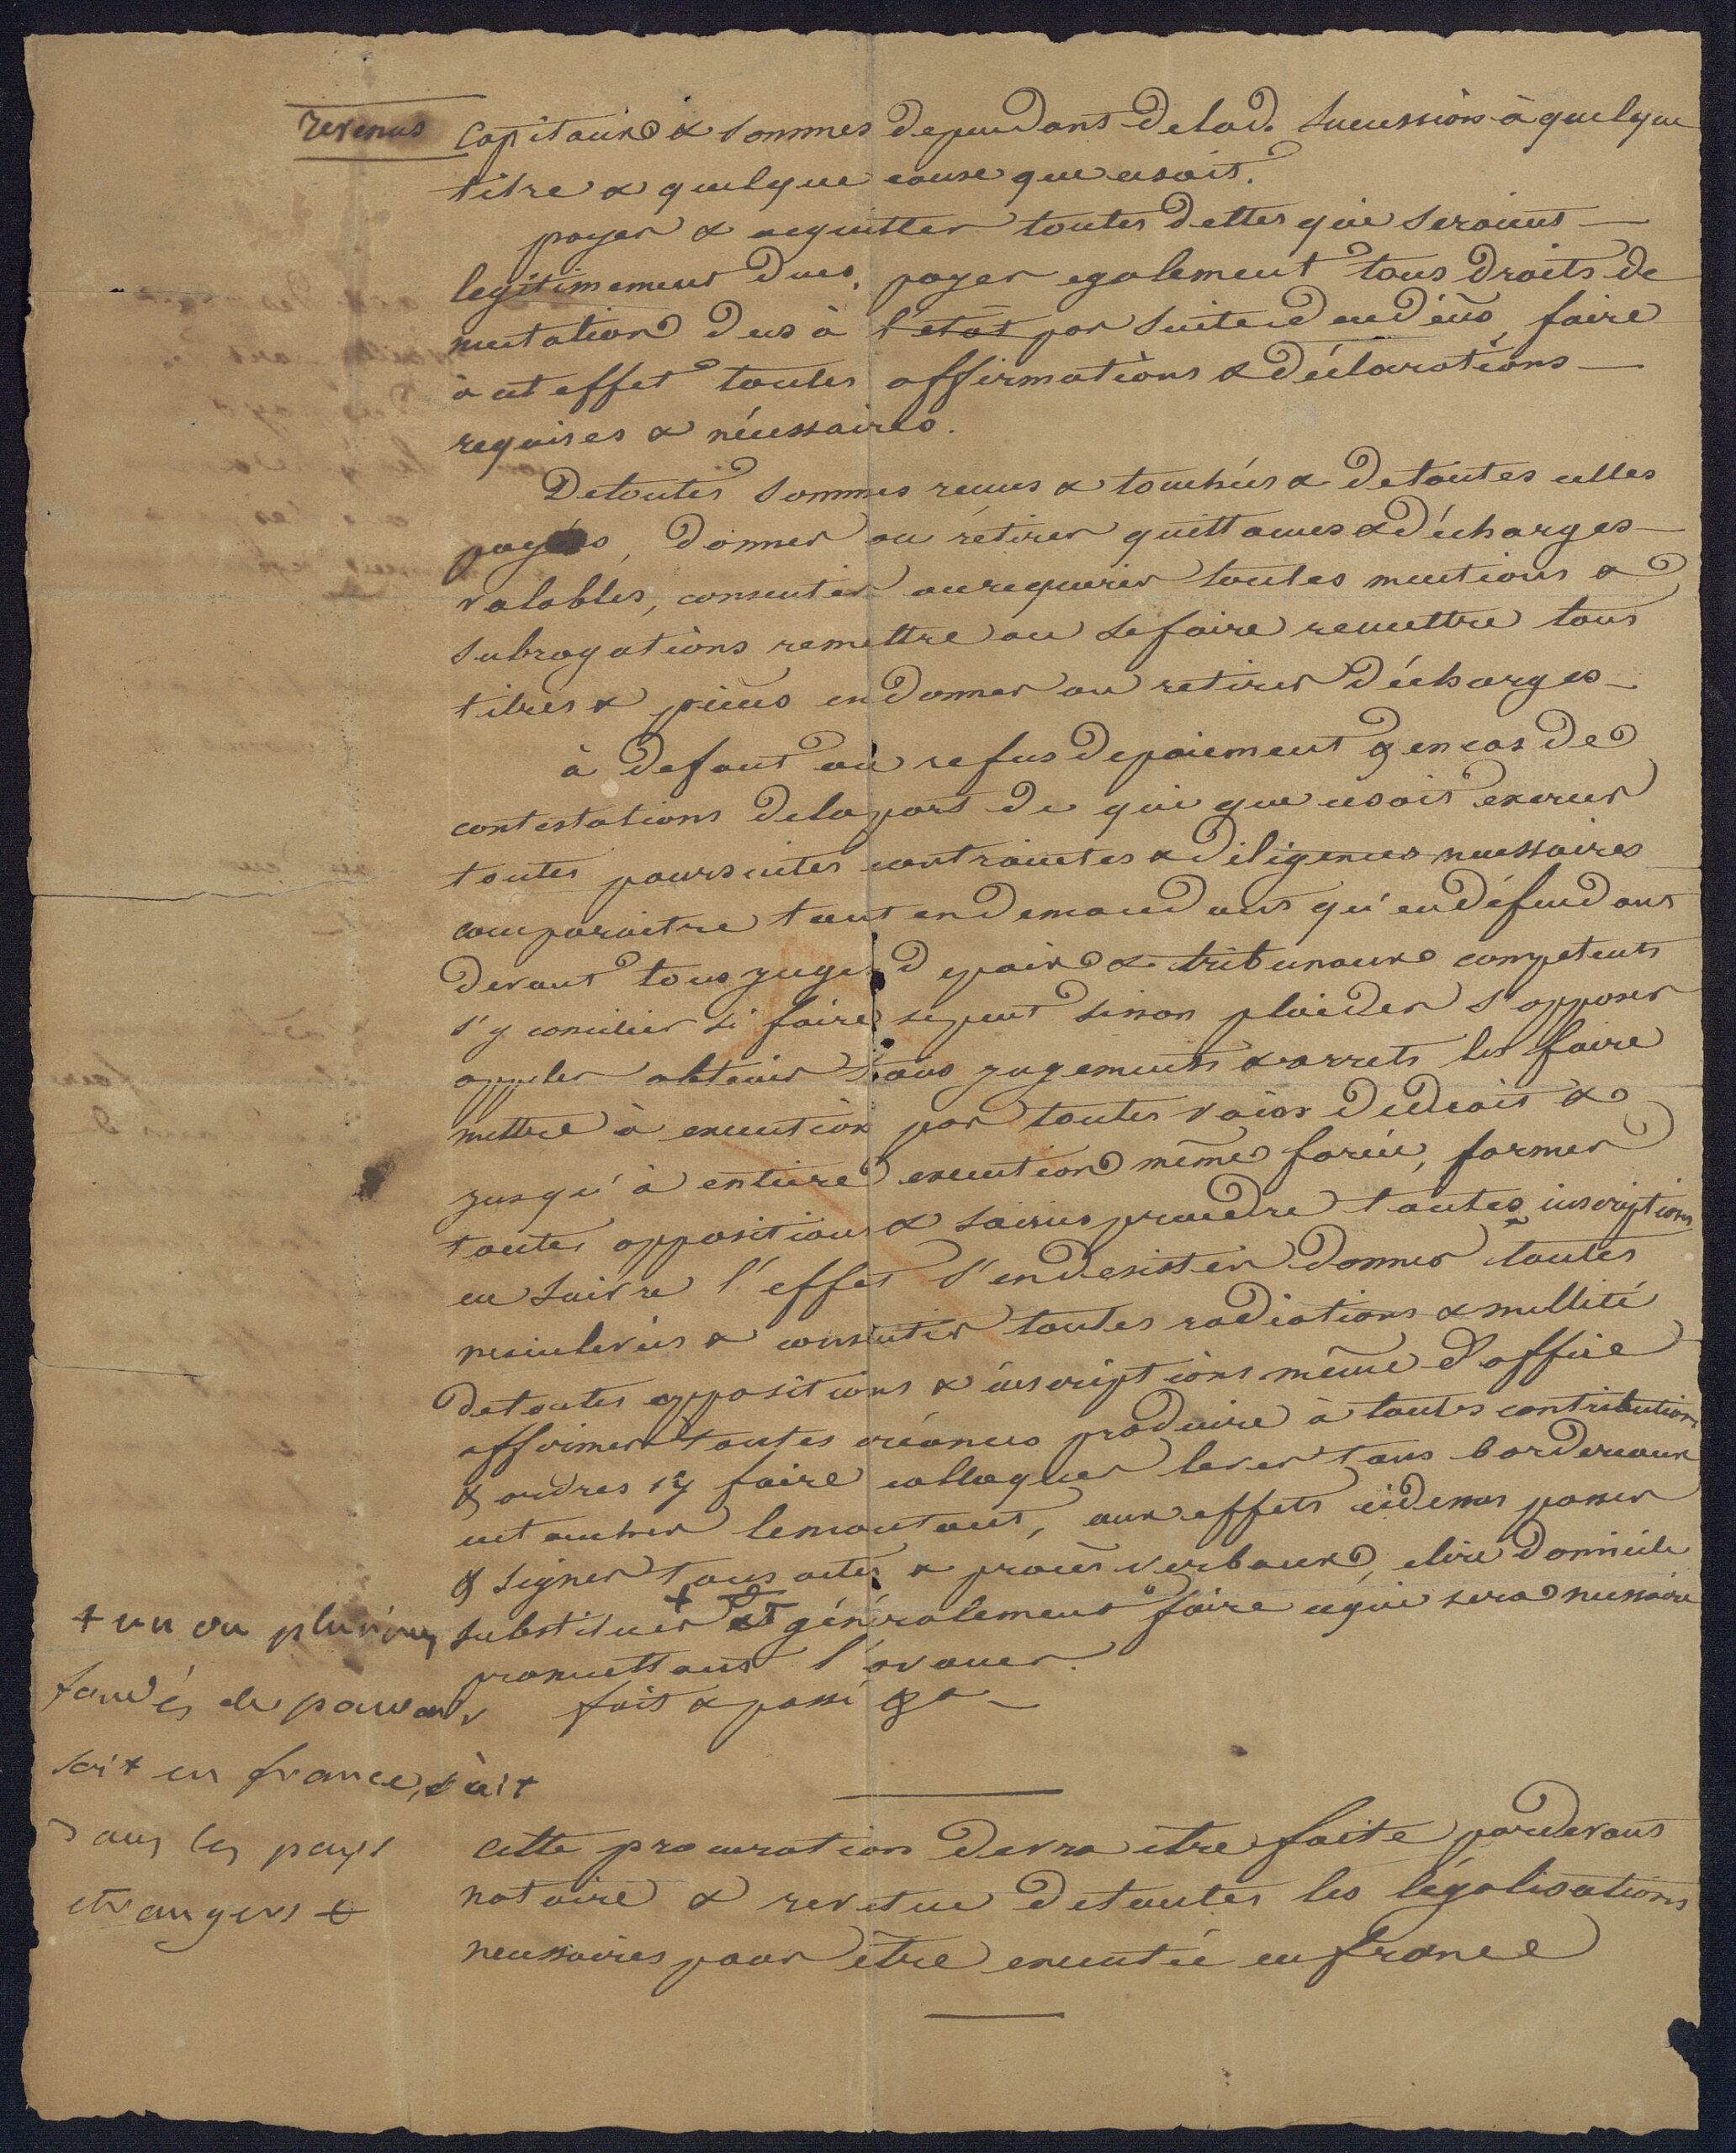 revenus
Capitaux & sommes dependans de lad. succession à quelque
titre & quelque cause que ce soit.
payer & acquitter toutes dettes qui seraient
legitimement dues, payer egalement tous droits de
mutation dus à l'état par suite du décès, faire
à cet effet toutes affirmations & déclarations
requises & nécessaires.
De toutes sommes recues & touchées & de toutes celles
payées, donner ou retirer quittances & décharges
valables, consentir ou requerir toutes mentions &
subrogations remettre ou se faire remettre tous
titres & pieces en donner ou retirer décharges
à defaut ou refus de paiement & en cas de
contestations de la part de qui que ce soit exercer
toutes poursuites contraintes & diligences necessaires
comparaitre tant en demandant qu'en défendant
devant tous juges de paix & tribunaux competents
s'y concilier si faire se peut sinon plaider s'opposer
appeler obtenir tous jugements & arrets les faire
mettre à execution par toutes voies de droit &
jusqu'à entiere execution même forcée, former
toutes oppositions & saisies prendre toutes inscriptions
en suivre l'effet s'en desister donner toutes
mainlevées & consentir toutes radiations & nullité
de toutes oppositions & inscriptions même d'office
affirmer toutes créances produire à toutes contributions
& ordres s'y faire colloquer lever tous bordereaux
en toucher le montant, aux effets cidessus passer
& signer tous actes & procès verbaux, elire domicile
substituer + Et généralement faire ce qui sera necessaire
promettant l'avouer.
fait & passé &a
+ un ou plusieurs
fondés de pouvoir
soit en france, soit
dans les pays
etrangers +
Cette procuration devra etre faite pardevant
notaire & revetue de toutes les légalisations
necessaires pour être executée en france